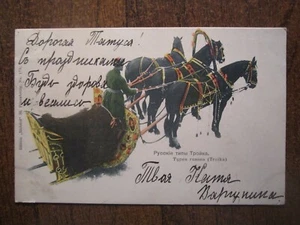 Дорогая Татуся!
Съ праздниками
Будь здорова
и весела
Русскiе типы Тройка.
Types russes (Troïka)
Твоя Катя
Варгунина